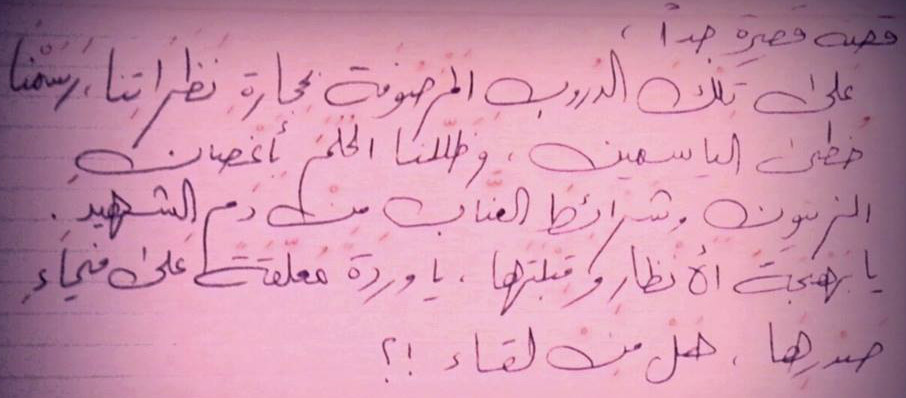 قصة قصيرة جداً ،
على تلك الدروب المرصوفة بحجارة نظراتنا، رسمنا
خطى الياسمين ، وظللنا الحلم بأغصانِ
الزيتون وشرائط العنّاب من دم الشهيد .
يا بهجة الأنظار وقبلتها ، يا وردة معلّقة على
صدرها ، هل من لقاء !؟